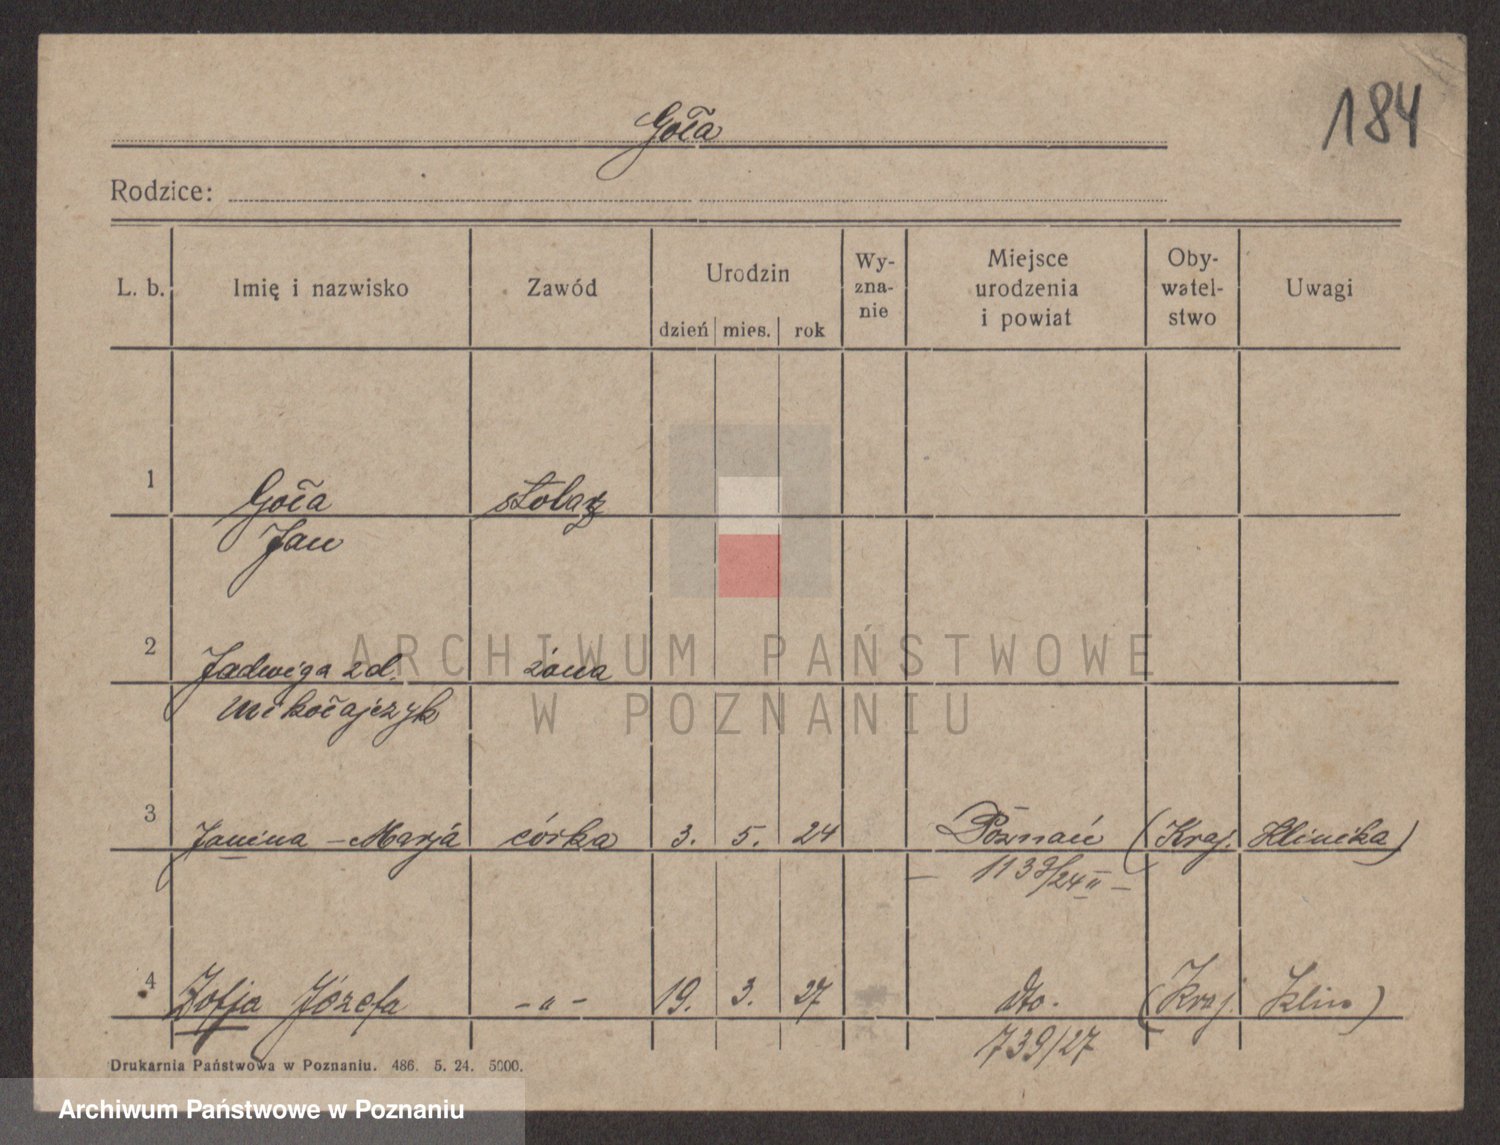 184
Goła
Rodzice:
L. b. Imię i nazwisko Zawód Urodzin dzień mies. rok Wy-zna-nie Miejsce urodzenia i powiat Oby-watel-stwo Uwagi
1 Goła stolarz
Jan
2 Jadwiga zd. żona
Mikołajczyk
3 Janina - Marja córka 3. 5. 24 Poznań (Kraj. Klinika)
1139/24 II
4 Zofja Józefa - " - 19. 3. 27 dto. (Kraj. Klin)
739/27
Drukarnia Państwowa w Poznaniu. 486. 5. 24. 5000.
ARCHIWUM PAŃSTWOWE
W POZNANIU
Archiwum Państwowe w Poznaniu